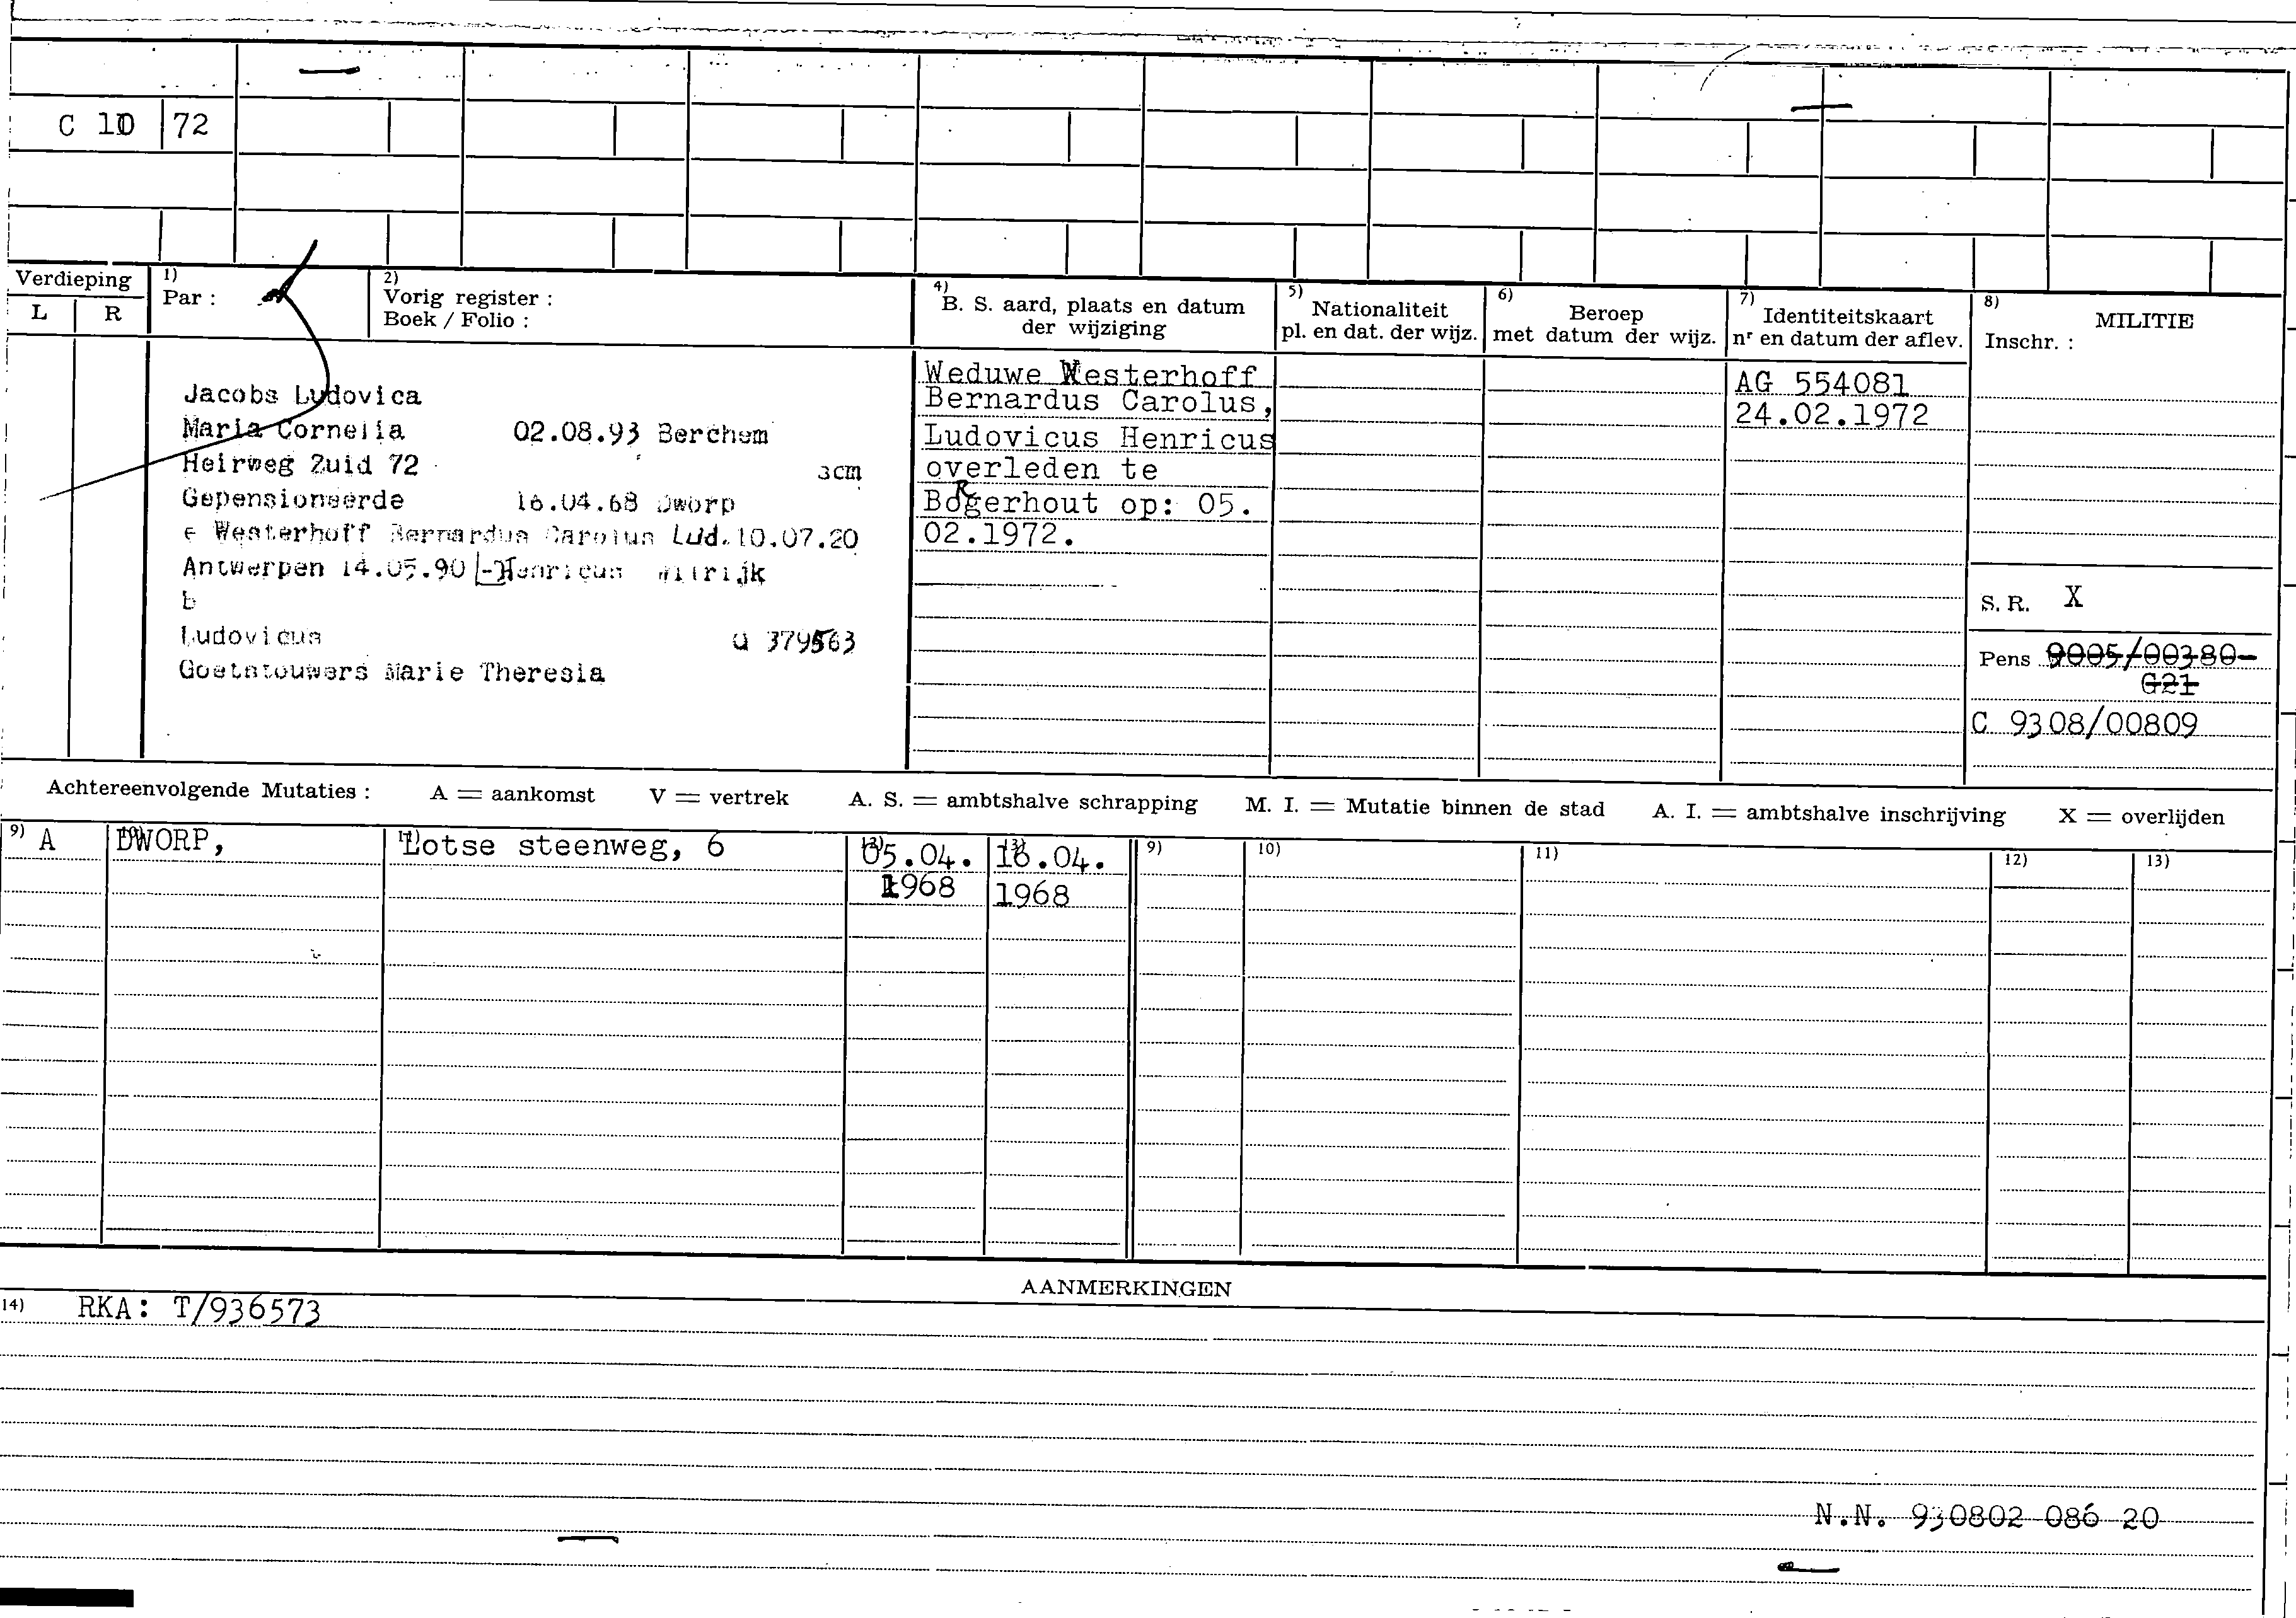 C 10 72
Verdieping
L R
1)
Par :
2)
Vorig register :
Boek / Folio :
4)
B. S. aard, plaats en datum
der wijziging
5)
Nationaliteit
pl. en dat. der wijz.
6)
Beroep
met datum der wijz.
7)
Identiteitskaart
nʳ en datum der aflev.
8)
MILITIE
Inschr. :
Jacobs Ludovica
Maria Cornelia 02.08.93 Berchem
Heirweg Zuid 72 acm
Gepensioneerde 16.04.68 Dworp
e Westerhoff Bernardus Carolus Lud. 10.07.20
Antwerpen 14.05.90 Henricus Wilrijk
b
Ludovicus Q 379563
Marie Theresia
Weduwe Westerhoff
Bernardus Carolus,
Ludovicus Henricus
overleden te
Borgerhout op: 05.
02.1972.
AG 554081
24.02.1972
S. R. X
Pens 9005/00380-
G21
C 9308/00809
Achtereenvolgende Mutaties : A = aankomst V = vertrek A. S. = ambtshalve schrapping M. I. = Mutatie binnen de stad A. I. = ambtshalve inschrijving X = overlijden
9) A 10) DWORP, 11) Lotse steenweg, 6 12) 05.04. 13) 16.04. 9) 10) 11) 12) 13)
1968 1968
AANMERKINGEN
14) RKA: T/936573
N.N. 930802 086 20